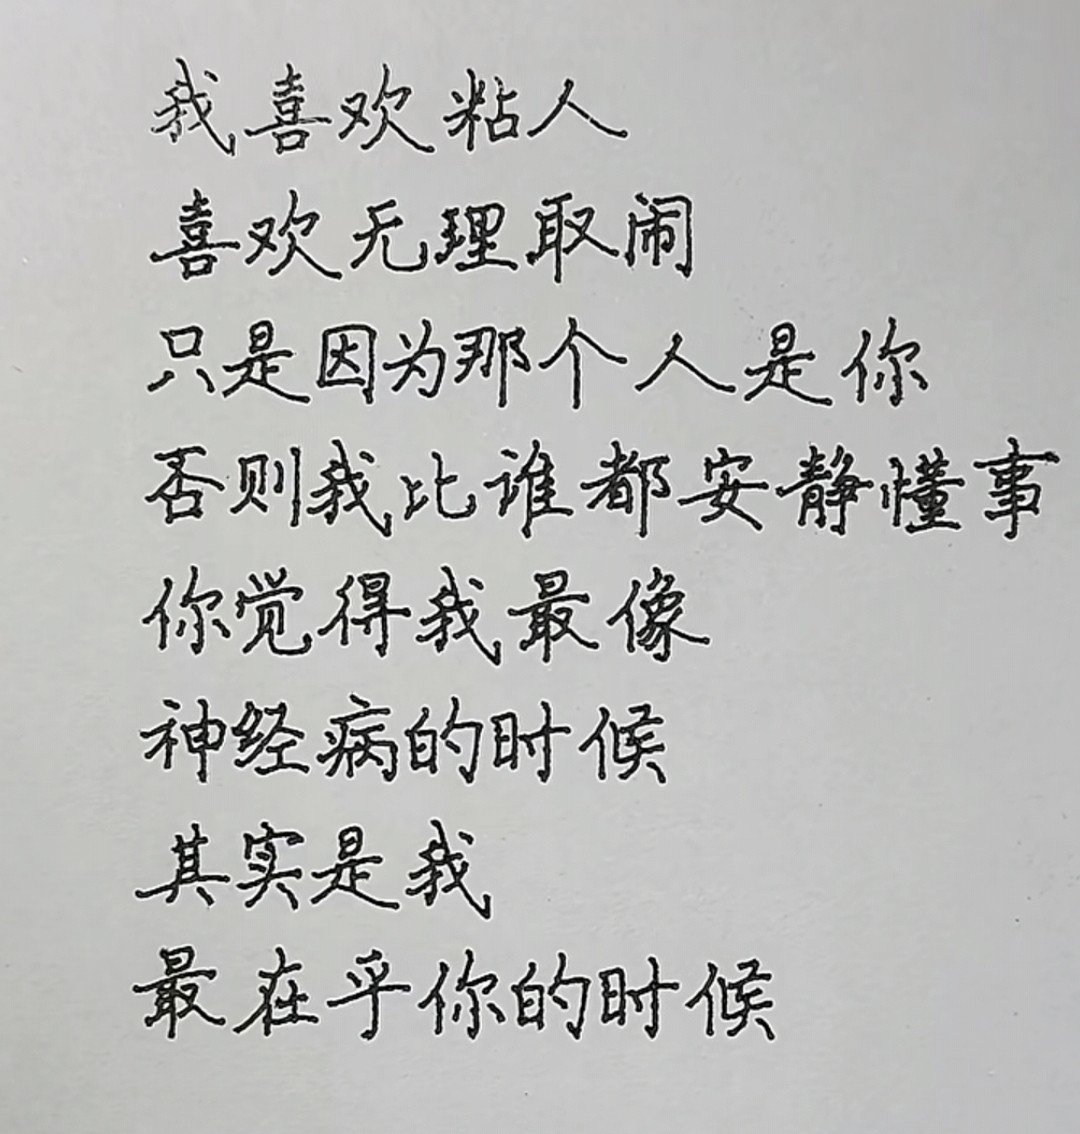 我喜欢粘人
喜欢无理取闹
只是因为那个人是你
否则我比谁都安静懂事
你觉得我最像
神经病的时候
其实是我
最在乎你的时候